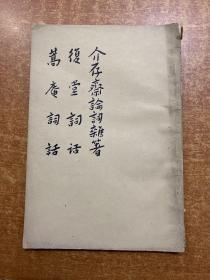 介存齋論詞雜著
復堂詞话
蒿庵詞話